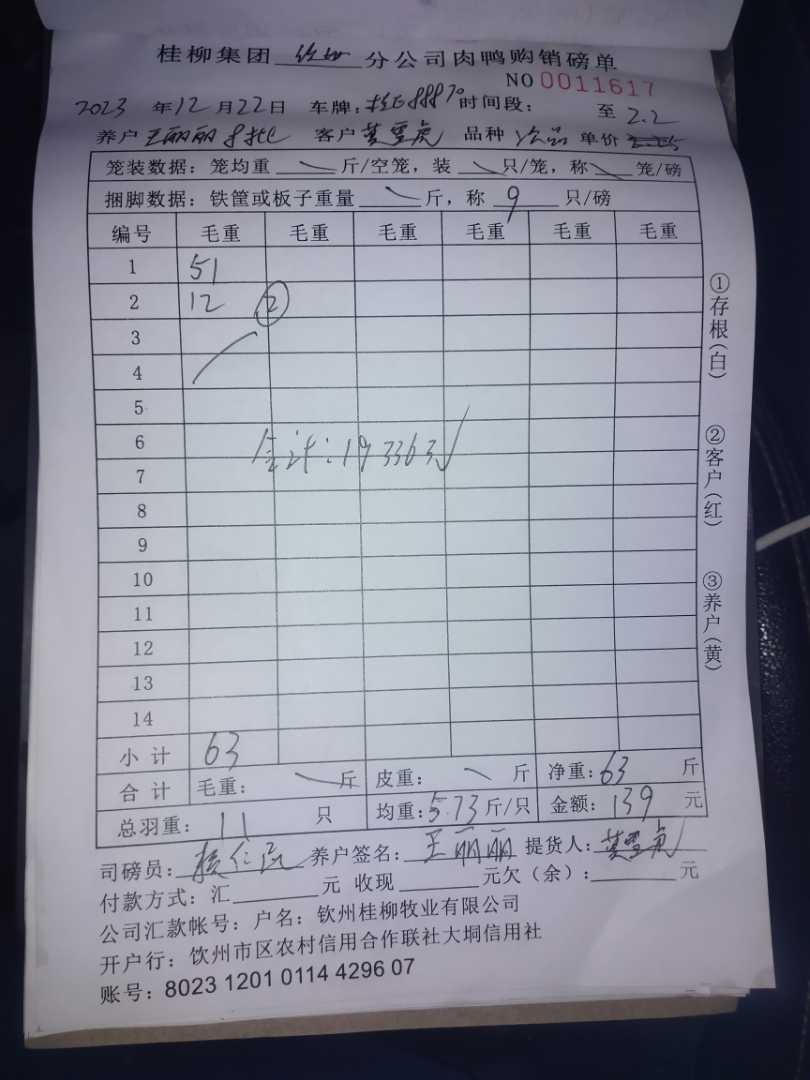 桂柳集团 钦州 分公司肉鸭购销磅单
NO 0011617
2023 年 12 月 22 日 车牌: 时间段: 至 2.2
养户 王丽丽 8批 客户 黄雪虎 品种 次品 单价 2.25
笼装数据: 笼均重 斤/空笼, 装 只/笼, 称 笼/磅
捆脚数据: 铁筐或板子重量 斤, 称 9 只/磅
编号 毛重 毛重 毛重 毛重 毛重 毛重
1 51
2 12 ②
3
4
5
6
合计: 193363 √
7
8
9
10
11
12
13
14
小计 63
合计 毛重: 斤 皮重: 斤 净重: 63 斤
总羽重: 11 只 均重: 5.73 斤/只 金额: 139 元
司磅员: 养户签名: 王丽丽 提货人: 黄雪虎
付款方式: 汇 元 收现 元欠(余): 元
公司汇款帐号: 户名: 钦州桂柳牧业有限公司
开户行: 饮州市区农村信用合作联社大垌信用社
账号: 8023 1201 0114 4296 07
①存根(白)
②客户(红)
③养户(黄)